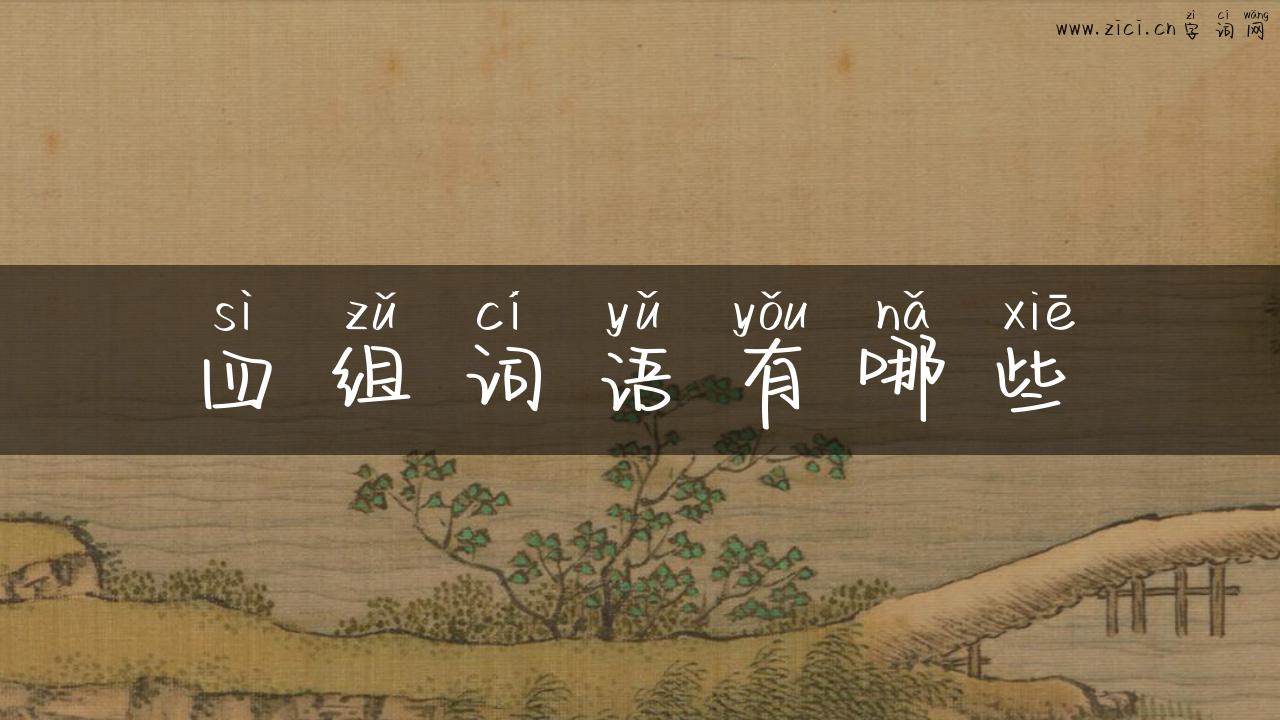 zì cí wǎng
www.zici.cn 字 词 网
sì zǔ cí yǔ yǒu nǎ xiē
四 组 词 语 有 哪 些